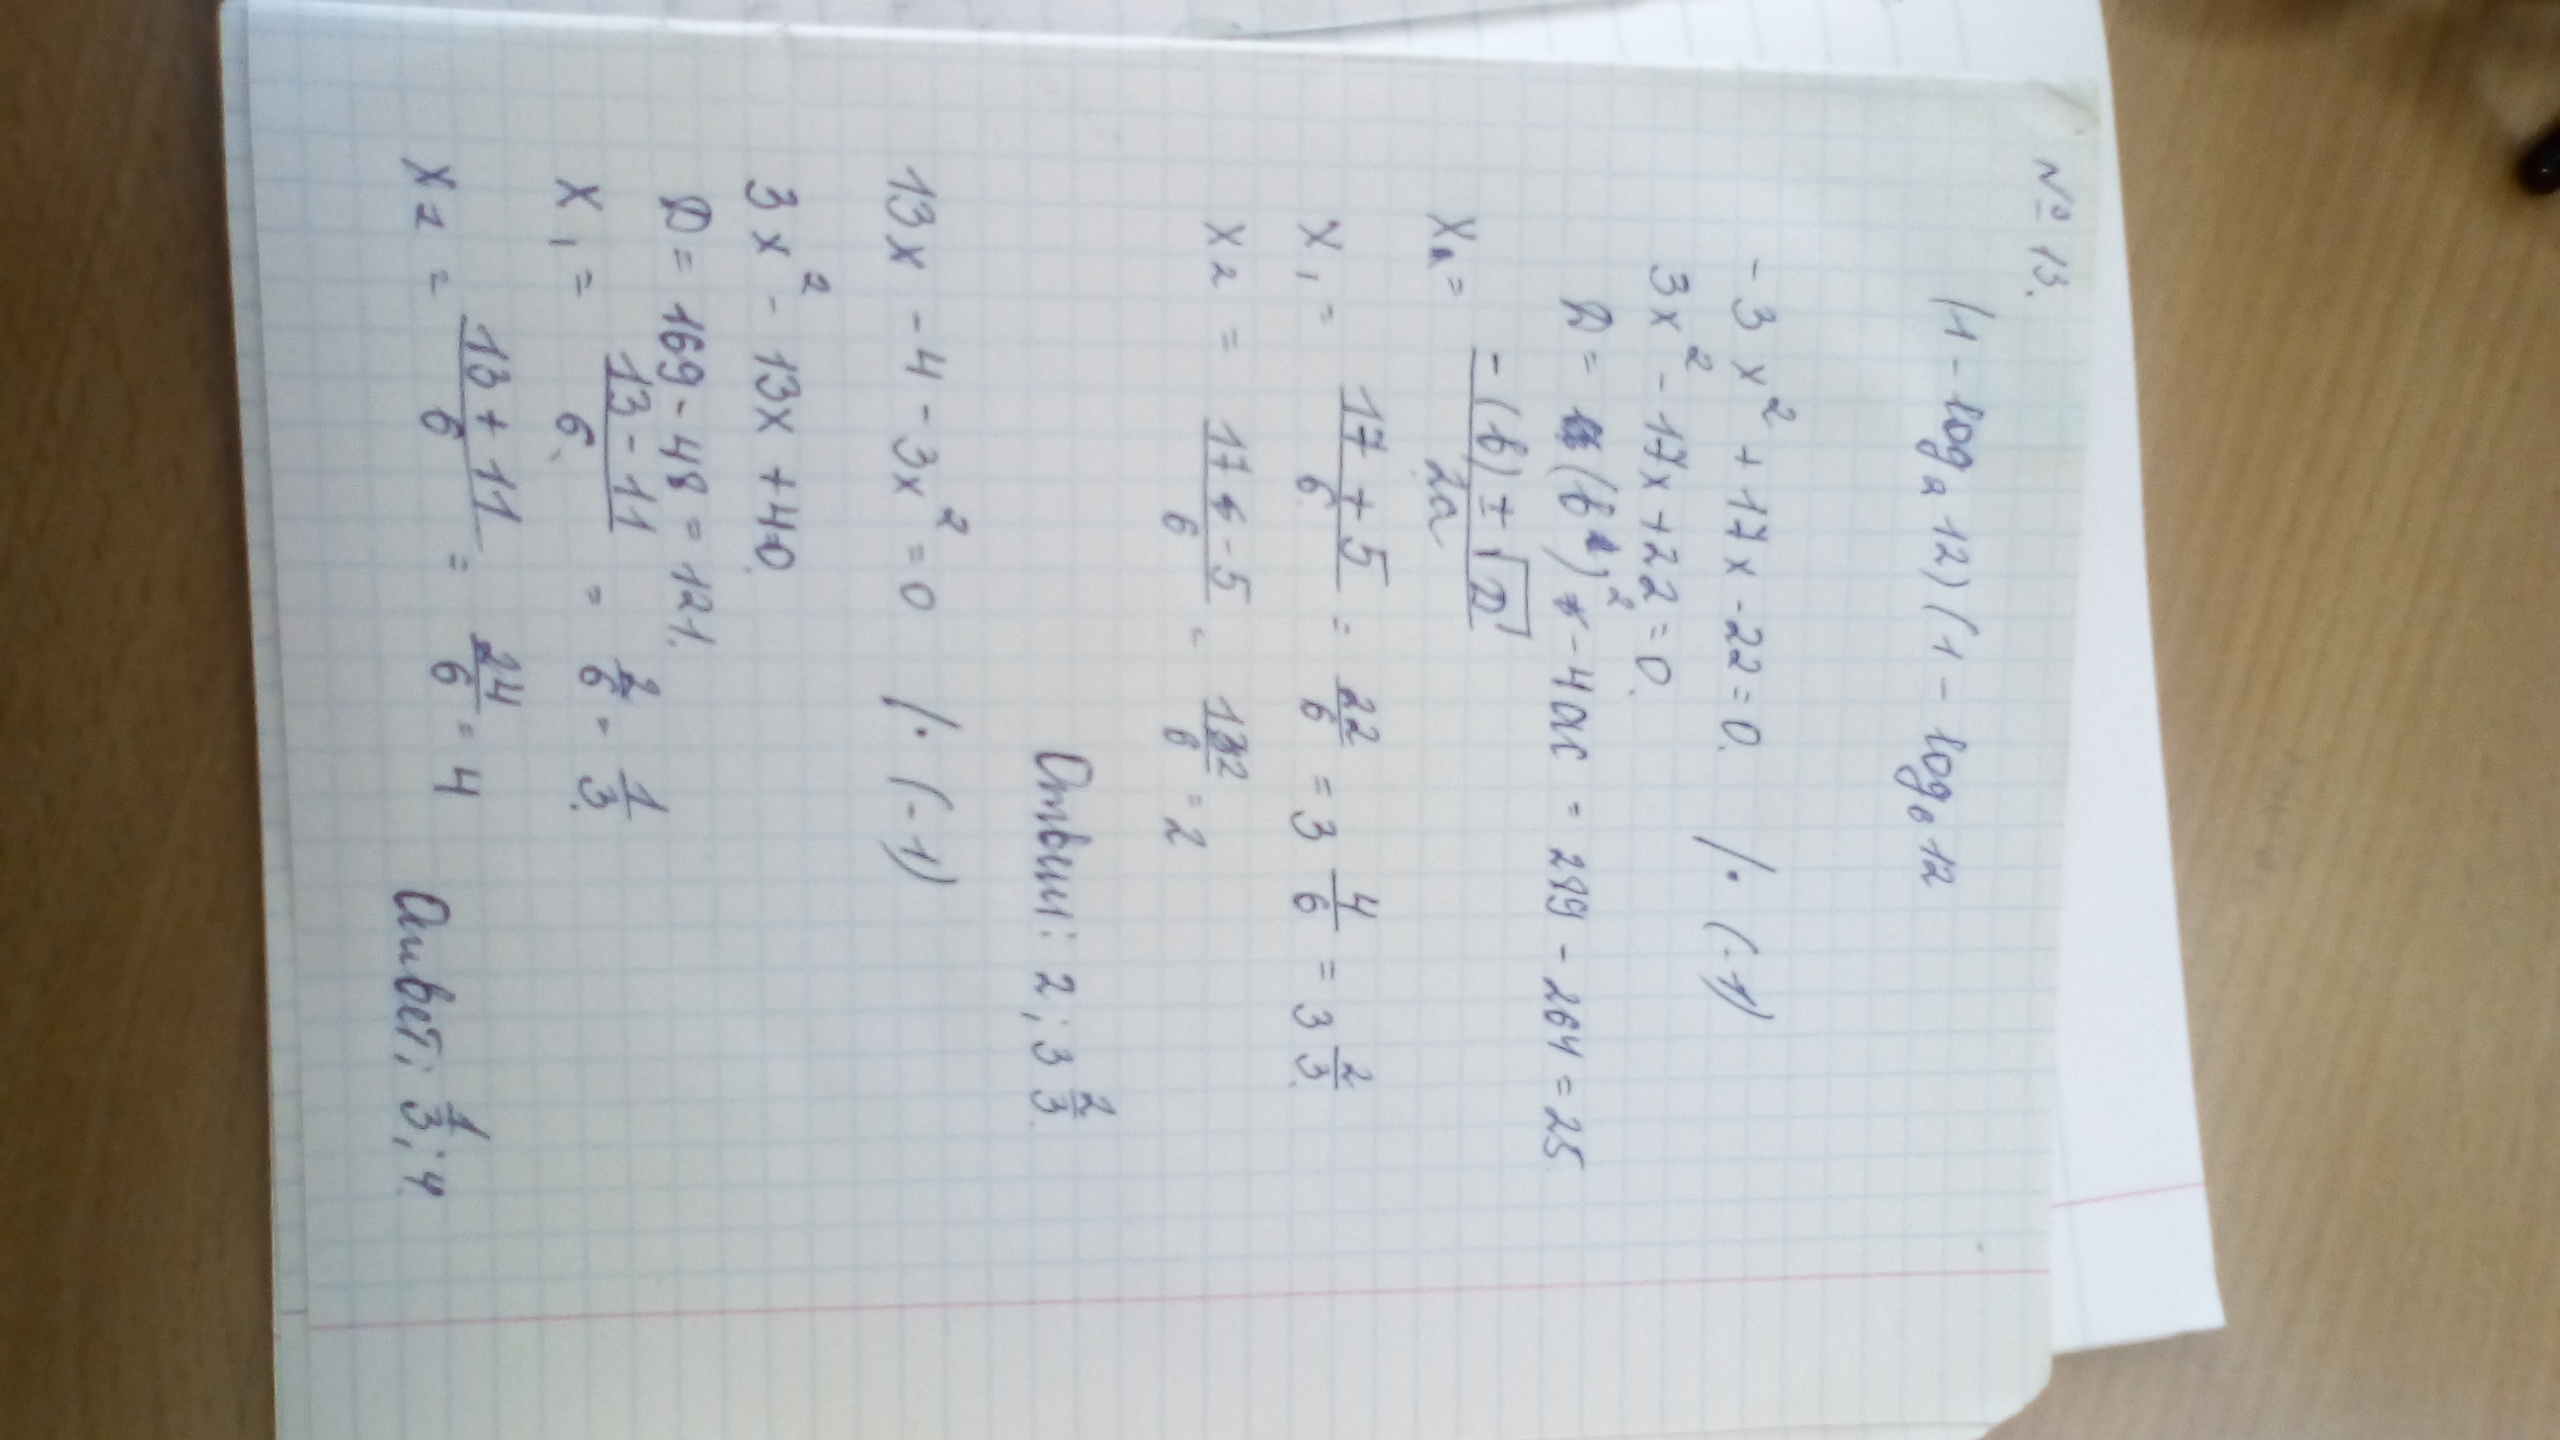 № 13.
(1 - log₂ 12) (1 - log₆ 12
- 3x² + 17x - 22 = 0. /· (-1)
3x² - 17x + 22 = 0.
D = (b)² - 4ac = 289 - 264 = 25.
x = -(b) ± √D / 2a
x₁ = 17 + 5 / 6 = 22/6 = 3 4/6 = 3 2/3.
x₂ = 17 - 5 / 6 = 12/6 = 2
Ответ: 2; 3 2/3.
13x - 4 - 3x² = 0 /· (-1)
3x² - 13x + 4 = 0.
D = 169 - 48 = 121.
x₁ = 13 - 11 / 6. = 2/6 = 1/3.
x₂ = 13 + 11 / 6 = 24/6 = 4
Ответ: 1/3; 4.